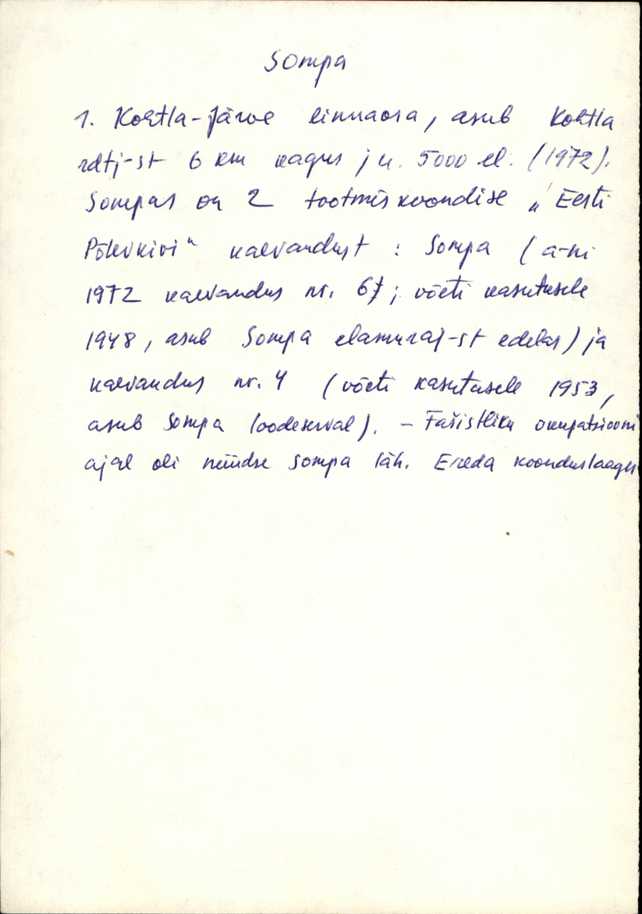 Sompa
1. Kohtla-Järve linnaosa, asub Kohtla
rdtj-st 6 km kagus; u. 5000 el. (1972).
Sompas on 2 tootmiskoondise „Eesti
Põlevkivi“ kaevandust: Sompa (a-ni
1972 kaevandus nr. 6; võeti kasutusele
1948, asub Sompa elamuraj-st edelas) ja
kaevandus nr. 4 (võeti kasutusele 1953,
asub Sompa loodeserval). – Fašistliku okupatsiooni
ajal oli nüüdse Sompa läh. Ereda koonduslaager